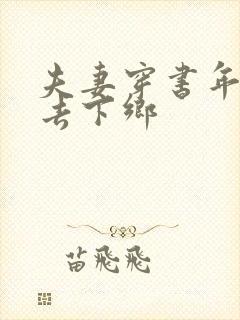 夫妻穿书年
去下乡
苗飛飛